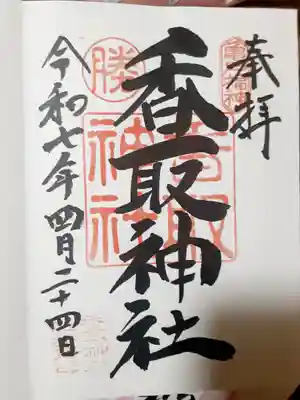 奉拝
香取神社
勝
香取神社
令和七年四月二十四日